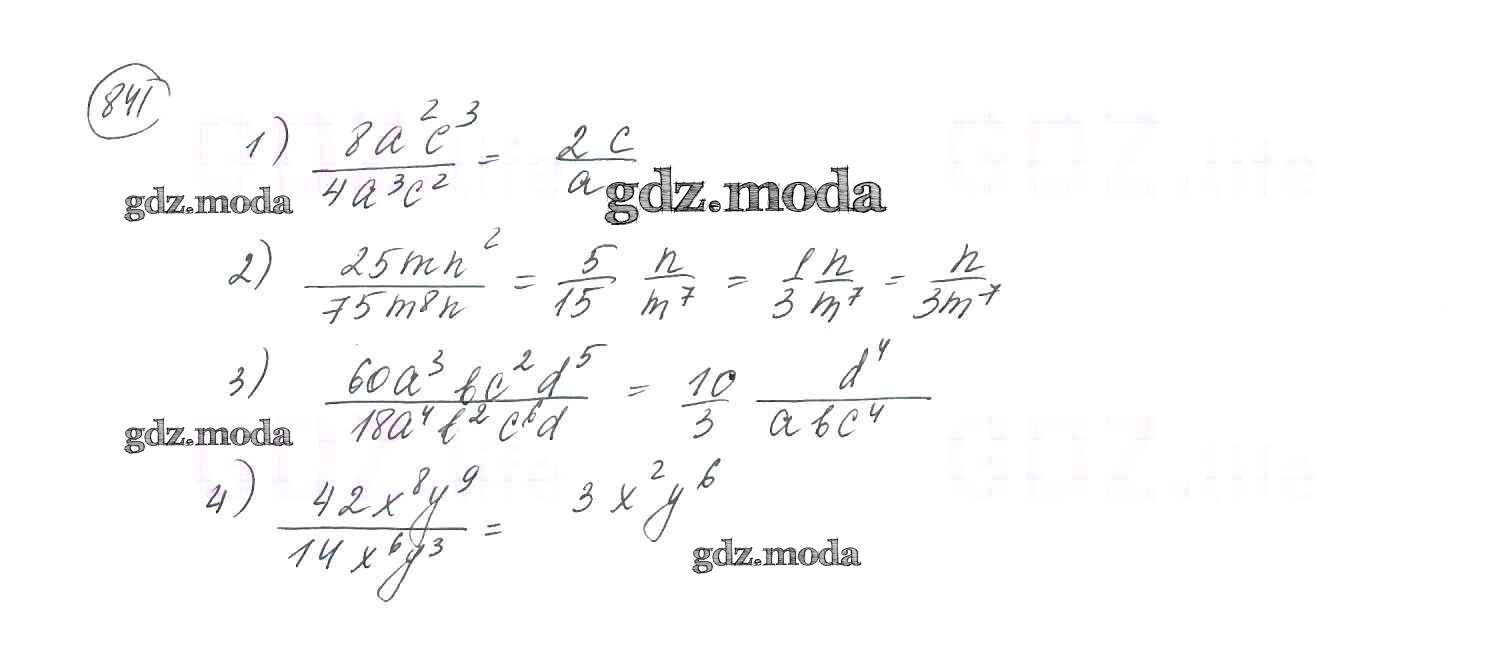 841
1) 8a²c³ / 4a³c² = 2c / a
gdz.moda gdz.moda
2) 25mn² / 75m⁸n = 5/15 n/m⁷ = 1/3 n/m⁷ = n/3m⁷
3) 60a³bc²d⁵ / 18a⁴b²c⁶d = 10/3 d⁴/abc⁴
gdz.moda
4) 42x⁸y⁹ / 14x⁶y³ = 3x²y⁶
gdz.moda